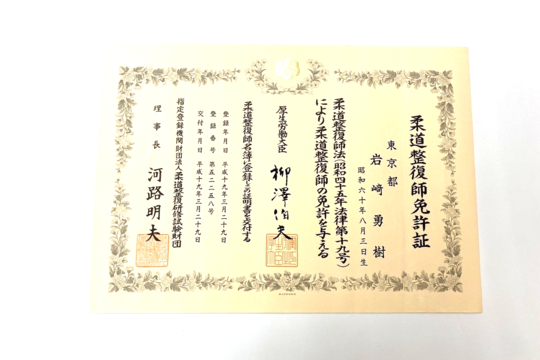 柔道整復師免許証
東京都
岩﨑勇樹
昭和六十年八月三日生
柔道整復師法(昭和四十五年法律第十九号)
により柔道整復師の免許を与える
厚生労働大臣 柳澤伯夫
柔道整復師名簿に登録しこの証明書を交付する
登録年月日 平成十九年三月二十九日
登録番号 第五二二五八号
交付年月日 平成十九年三月二十九日
指定登録機関財団法人柔道整復研修試験財団
理事長 河路明夫